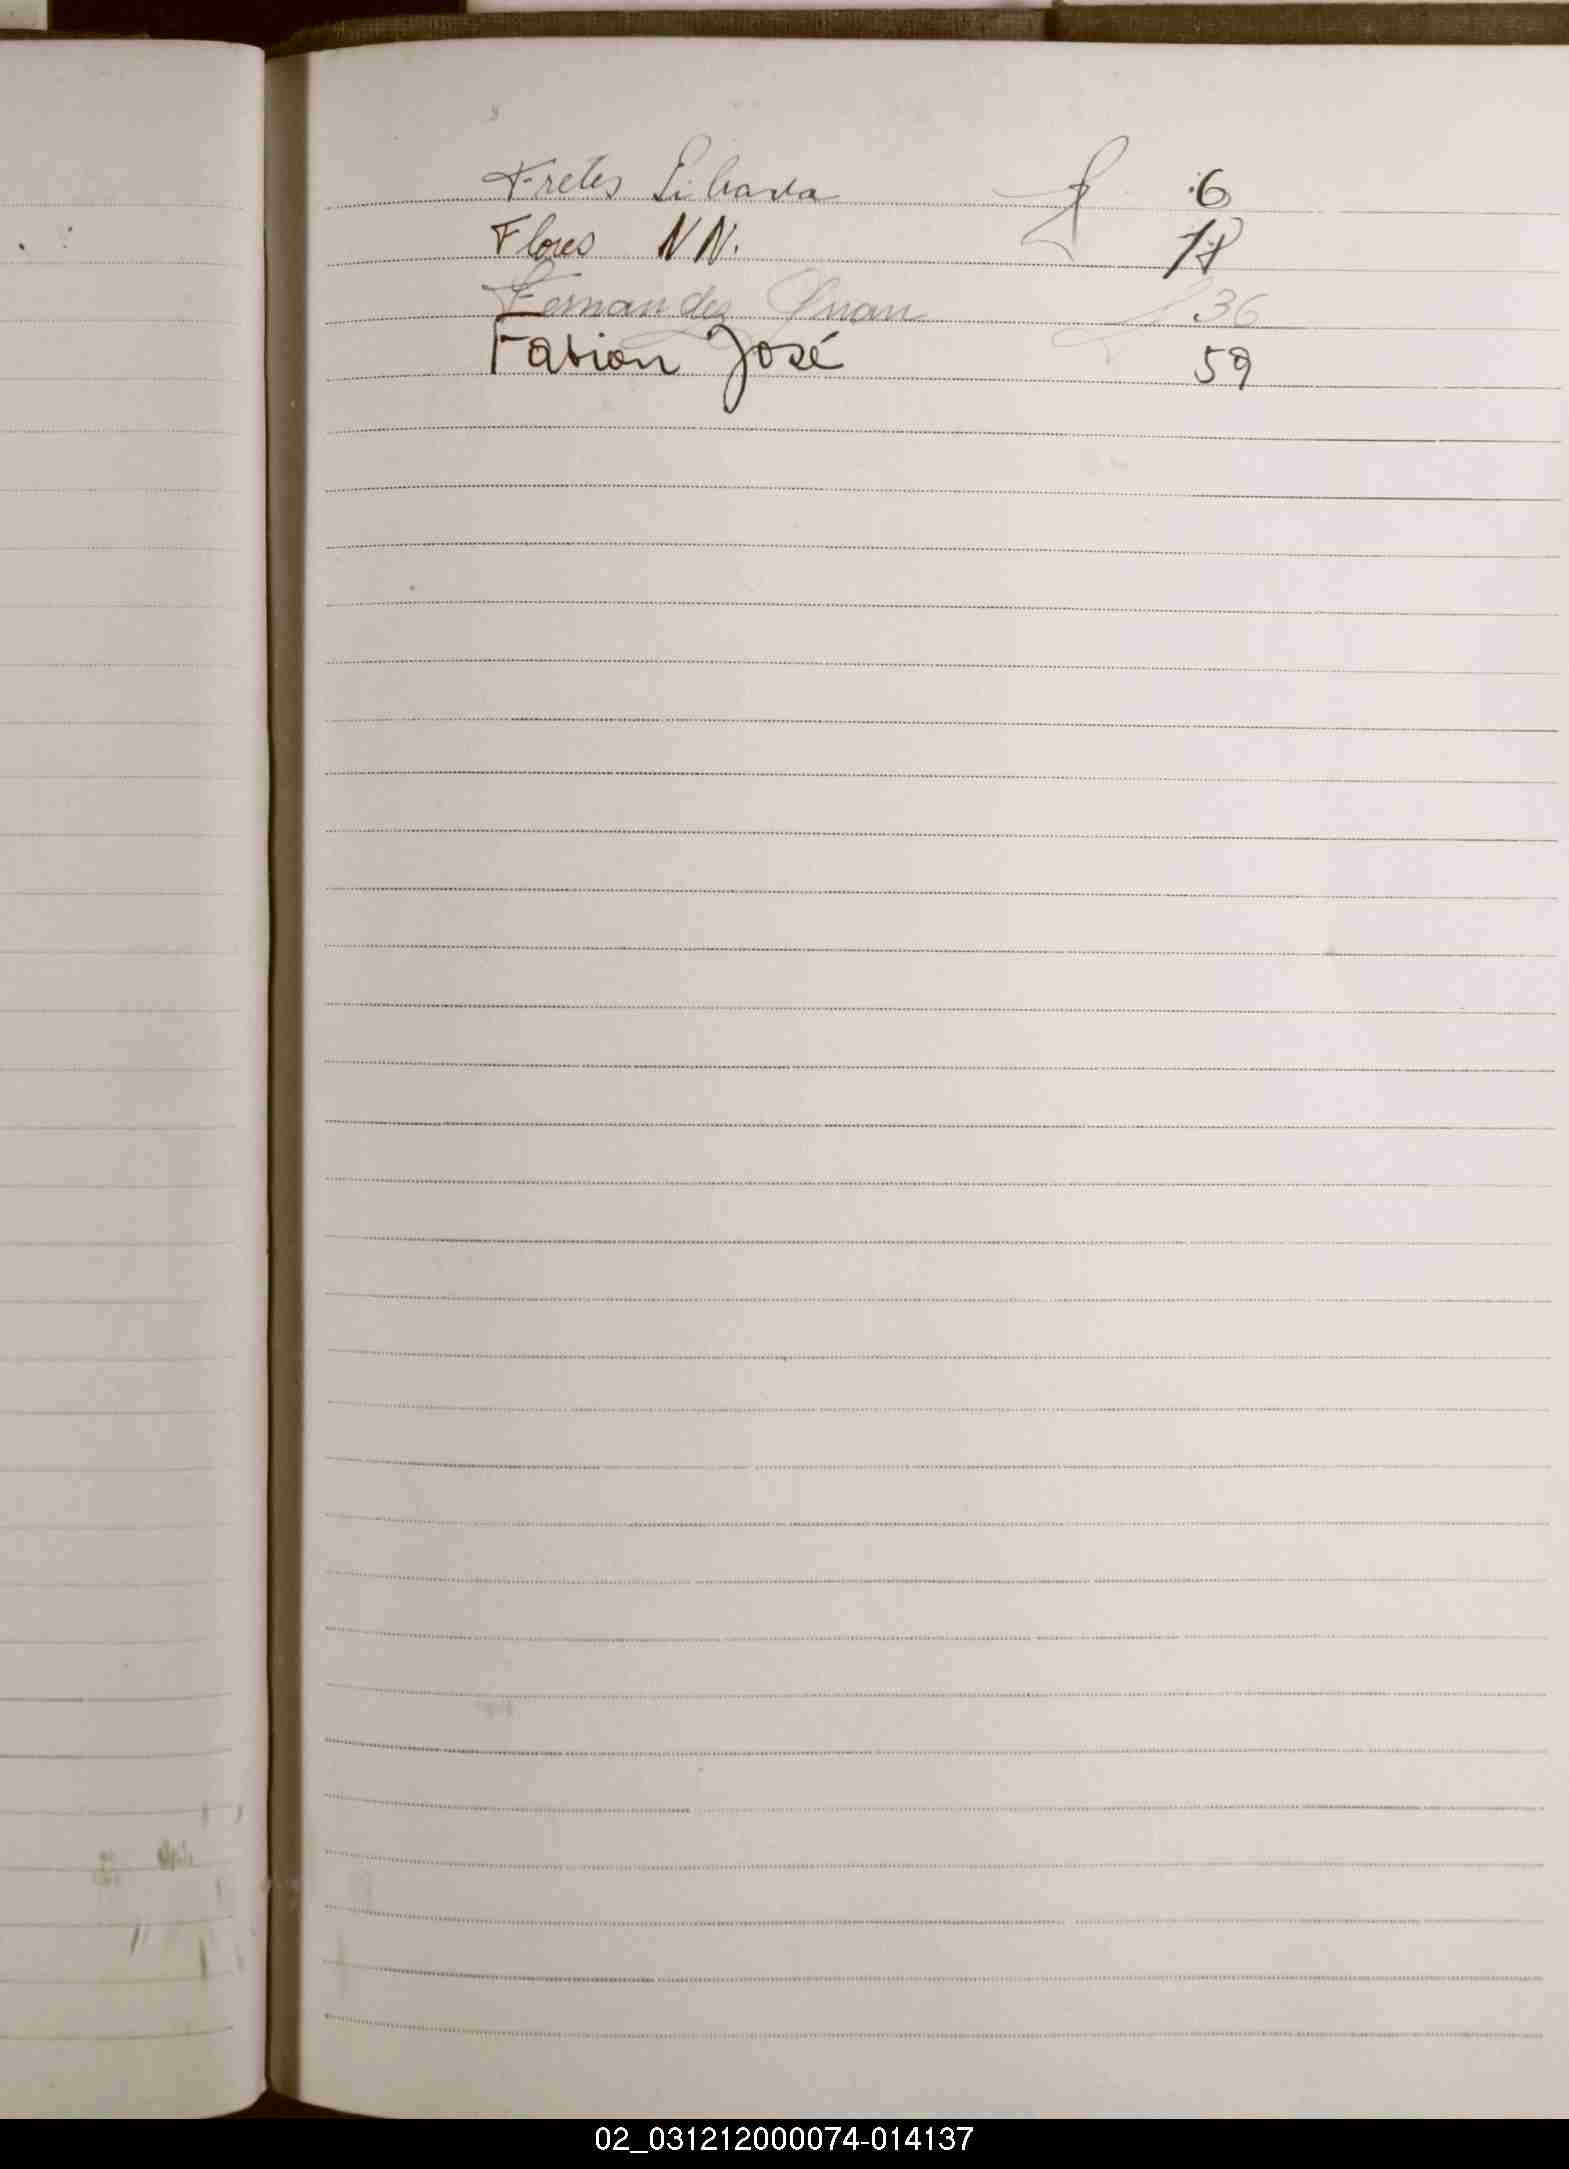 Fretes Librada f 6
Flores NN. 18
Fernandez Juan f 36
Fabian José 59
02_031212000074-014137